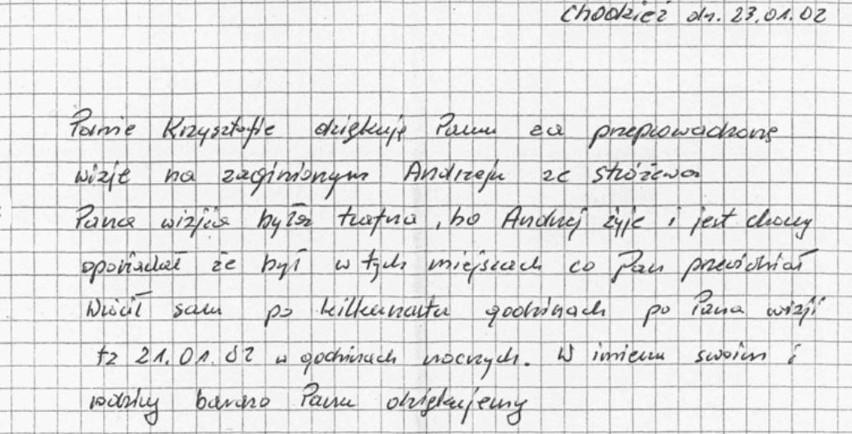 Chodzież dn. 23.01.02
Panie Krzysztofie dziękuję Panu za przeprowadzoną
wizje na zaginionym Andrzeju ze Stróżewa
Pana wizja była trafna, bo Andrzej żyje i jest chory
opowiadał że był w tych miejscach co Pan przewidział
Wrócił sam po kilkunastu godzinach po Pana wizji
tz 21.01.02 w godzinach nocnych. W imieniu swoim i
rodziny bardzo Panu dziękujemy